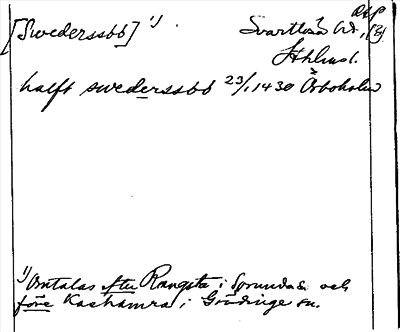 [Swederssbb] 1)
Svartlösa hd.,
Sthlms l.
halft swederssbb 23/1 1430 Årboholm
1) Omtalas efter Rangsta i Sorunda s. och
före Kashamra i Grödinge sn.